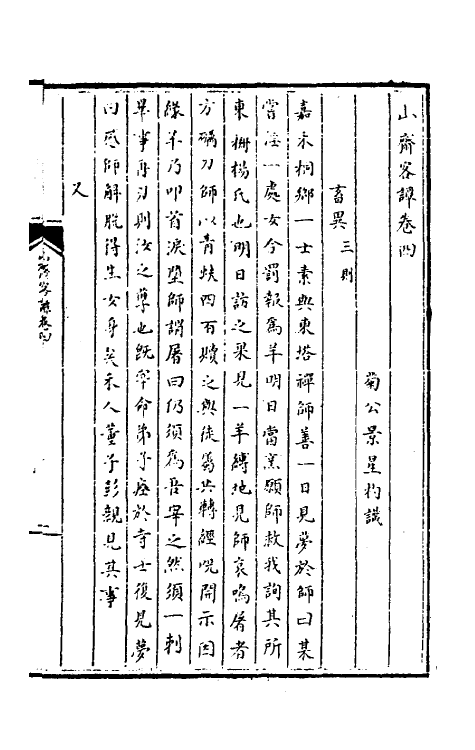 山齋客譚卷四
菊公景星杓識
畜異三則
嘉禾桐鄉一士素與東塔禪師善一日見夢於師曰某
嘗淫一處女今罰報為羊明日當烹願師救我詢其所
東柵楊氏也明日訪之果見一羊縛地見師哀鳴屠者
方礪刀師以青蚨四百贖之與徒為共轉經咒開示因
緣羊乃叩首淚墮師謂屠曰仍須為吾宰之然須一刺
畢事再刃則汝之孽也既宰命弟子瘞於寺士復見夢
曰感師解脫得生女身矣禾人董子彭親見其事
又
山齋客譚卷四